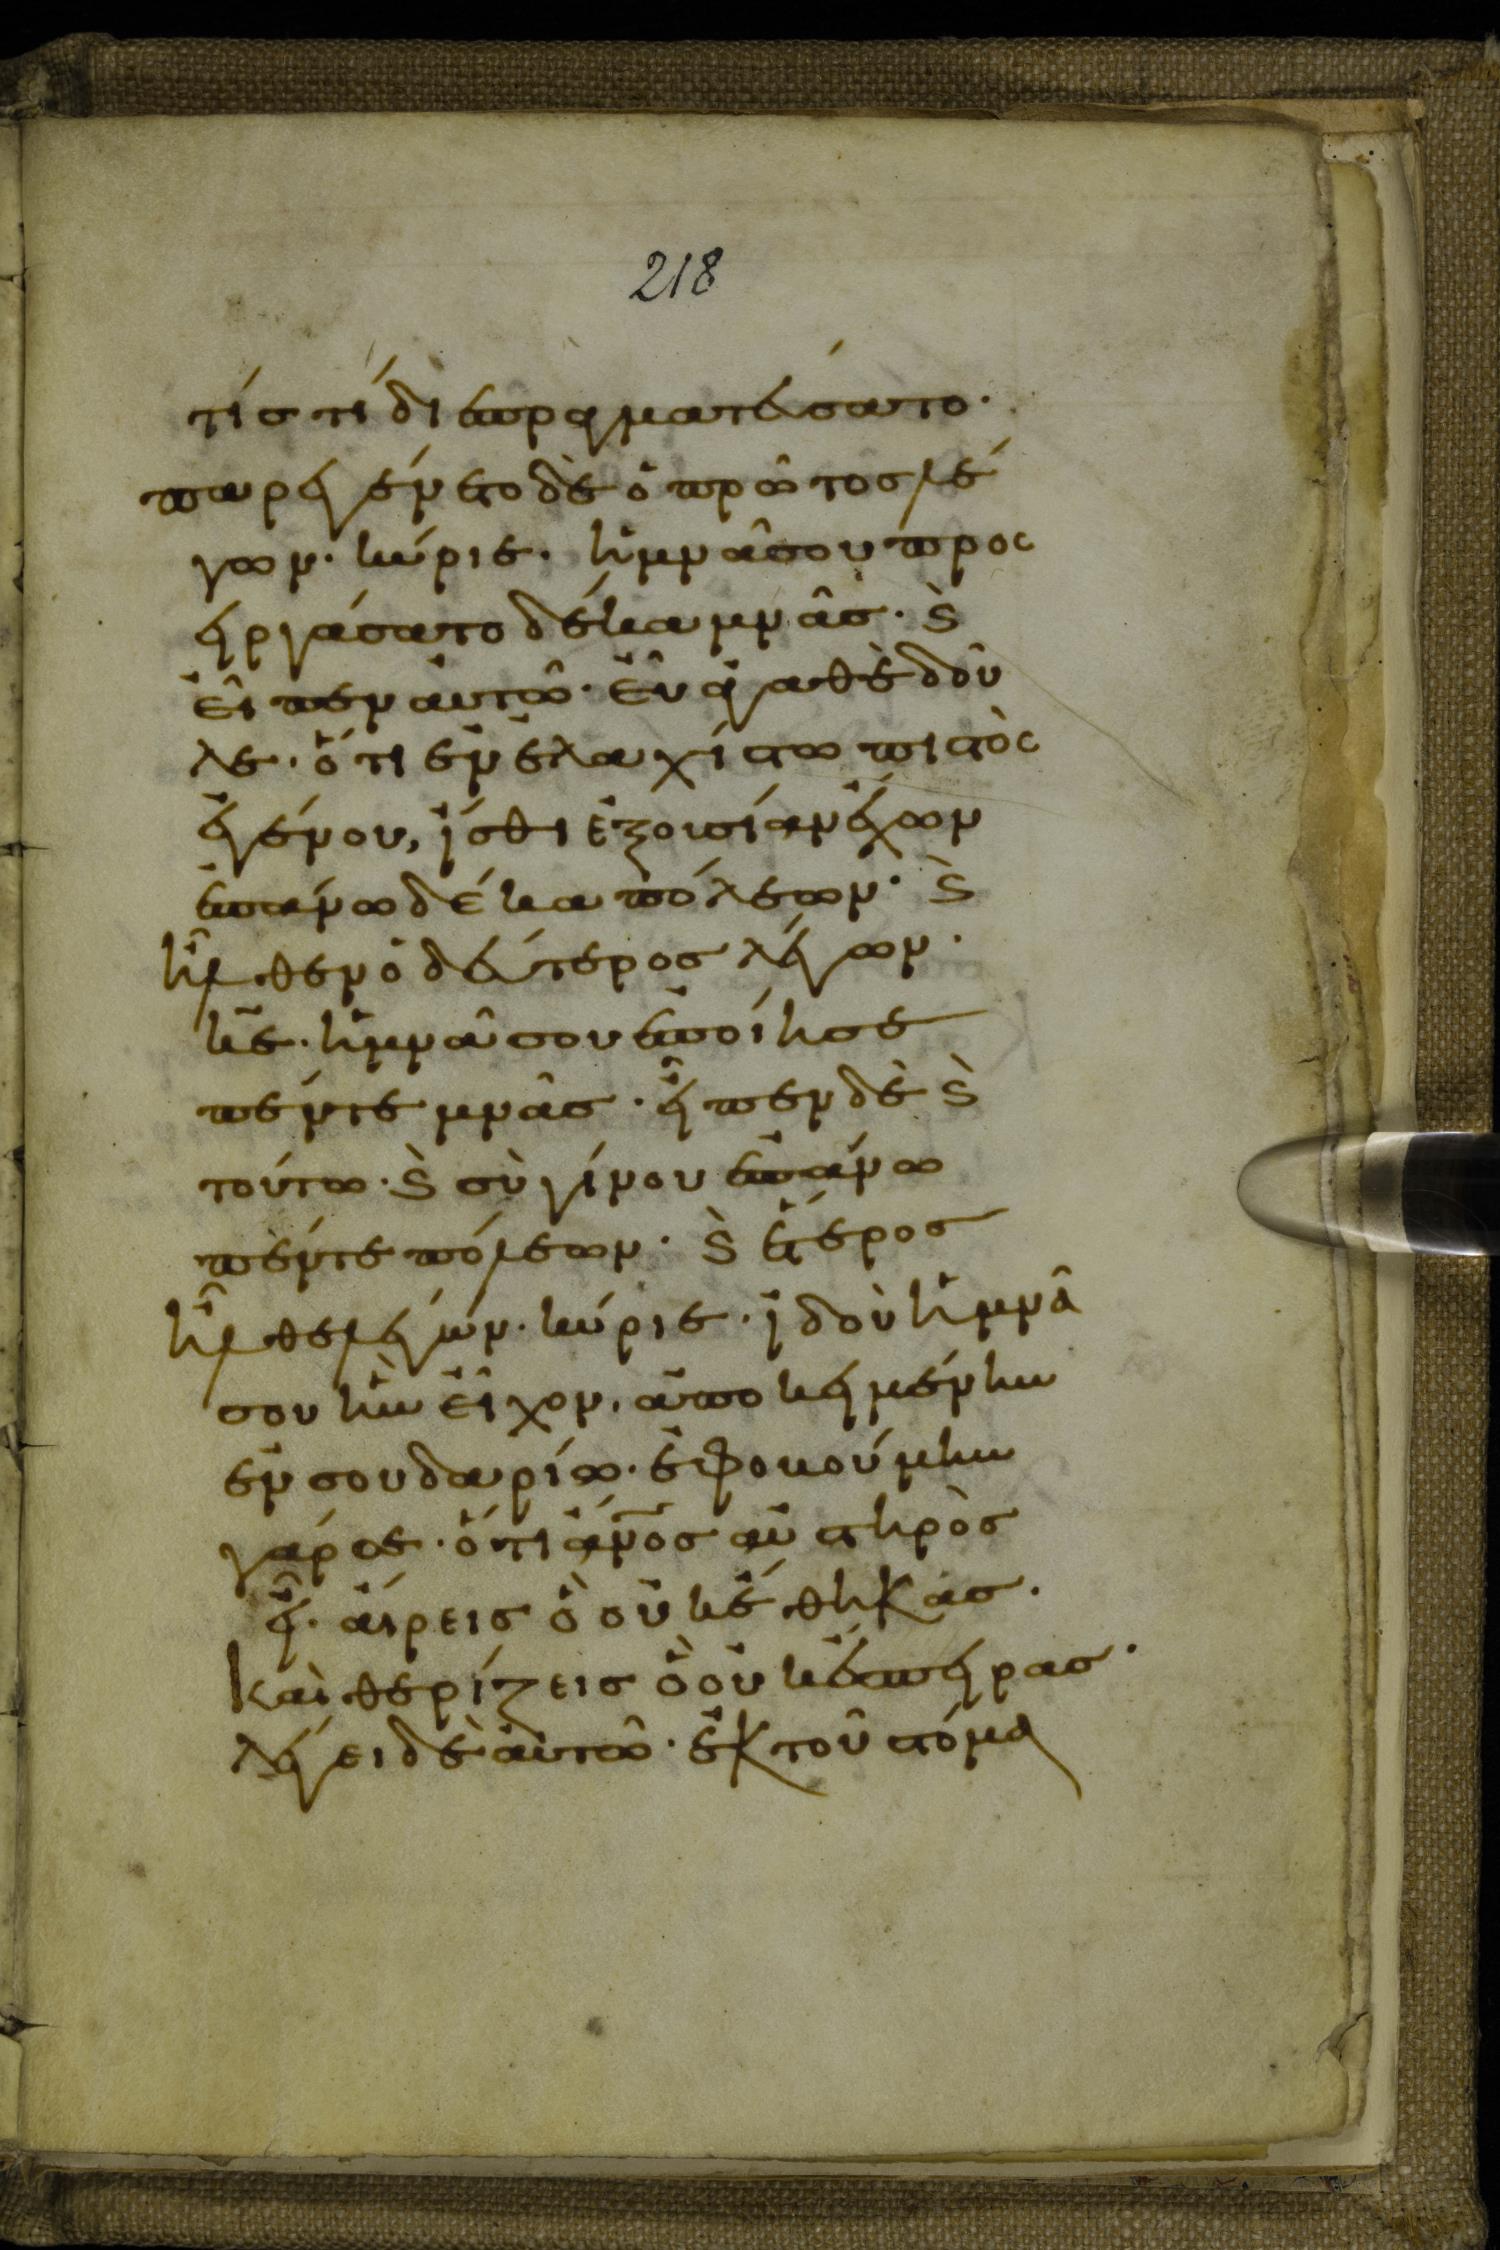 218
τίς τί διεπραγματεύσατο·
παρεγένετο δὲ ὁ πρῶτος λέ
γων· κύριε· ἡ μνᾶ σου προς
ειργάσατο δέκα μνᾶς· ϗ̀
εἶπεν αὐτῶ· εὖ ἀγαθὲ δοῦ
λε· ὅτι ἐν ἐλαχίστω πιστὸς
ἐγένου, ἴσθι ἐξουσίαν ἔχων
ἐπάνω δέκα πόλεων· ϗ̀
ἦλθεν ὁ δεύτερος λέγων·
κ̅ε̅· ἡ μνᾶ σου ἐποίησε
πέντε μνᾶς· εἶπεν δὲ ϗ̀
τούτω· ϗ̀ σὺ γίνου ἐπάνω
πέντε πόλεων· ϗ̀ ἕτερος
ἦλθε λέγων· κύριε· ἰδοὺ ἡ μνᾶ
σου ἣν εἶχον, ἀποκειμένην
ἐν σουδαρίω· ἐφοβούμην
γάρ σε· ὅτι ἄν̅ο̅ς αὐστηρὸς
εἶ· αἴρεις ὃ οὐκ ἔθηκας·
καὶ θερίζεις ὃ οὐκ ἔσπειρας·
λέγει δὲ αὐτῶ· ἐκ τοῦ στόμα